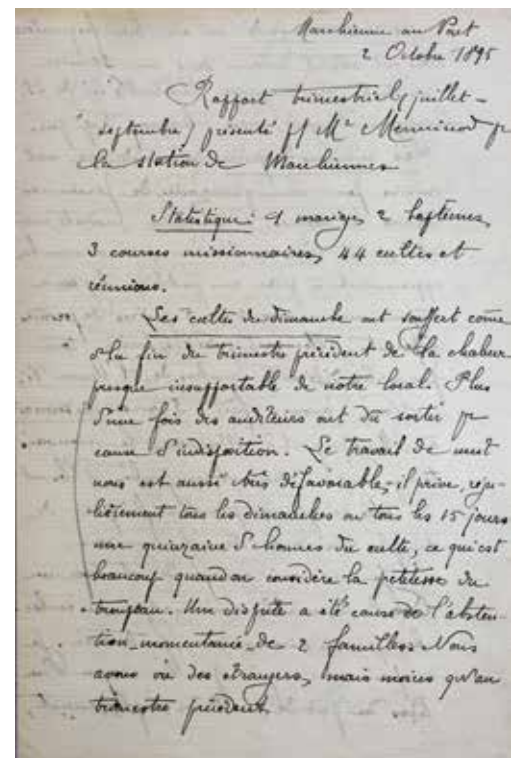 Marchienne au Pont
2 Octobre 1895
Rapport trimestriel (juillet-
septembre) présenté pr Mr Menninod pr
la station de Marchiennes
Statistique : 1 mariage, 2 baptêmes,
3 courses missionnaires, 44 cultes et
réunions.
Les cultes du dimanche ont souffert come
à la fin du trimestre précédent de la chaleur
presque insupportable de notre local. Plus
d'une fois des auditeurs ont dû sortir pr
cause d'indisposition. Le travail de nuit
nous est aussi très défavorable, il prive, régu-
lièrement tous les dimanches ou tous les 15 jours
une quinzaine d'hommes du culte, ce qui est
beaucoup quand on considère la petitesse du
troupeau. Une dispute a été cause de l'absten-
tion momentanée de 2 familles. Nous
avons vu des étrangers, mais moins qu'au
trimestre précédent.